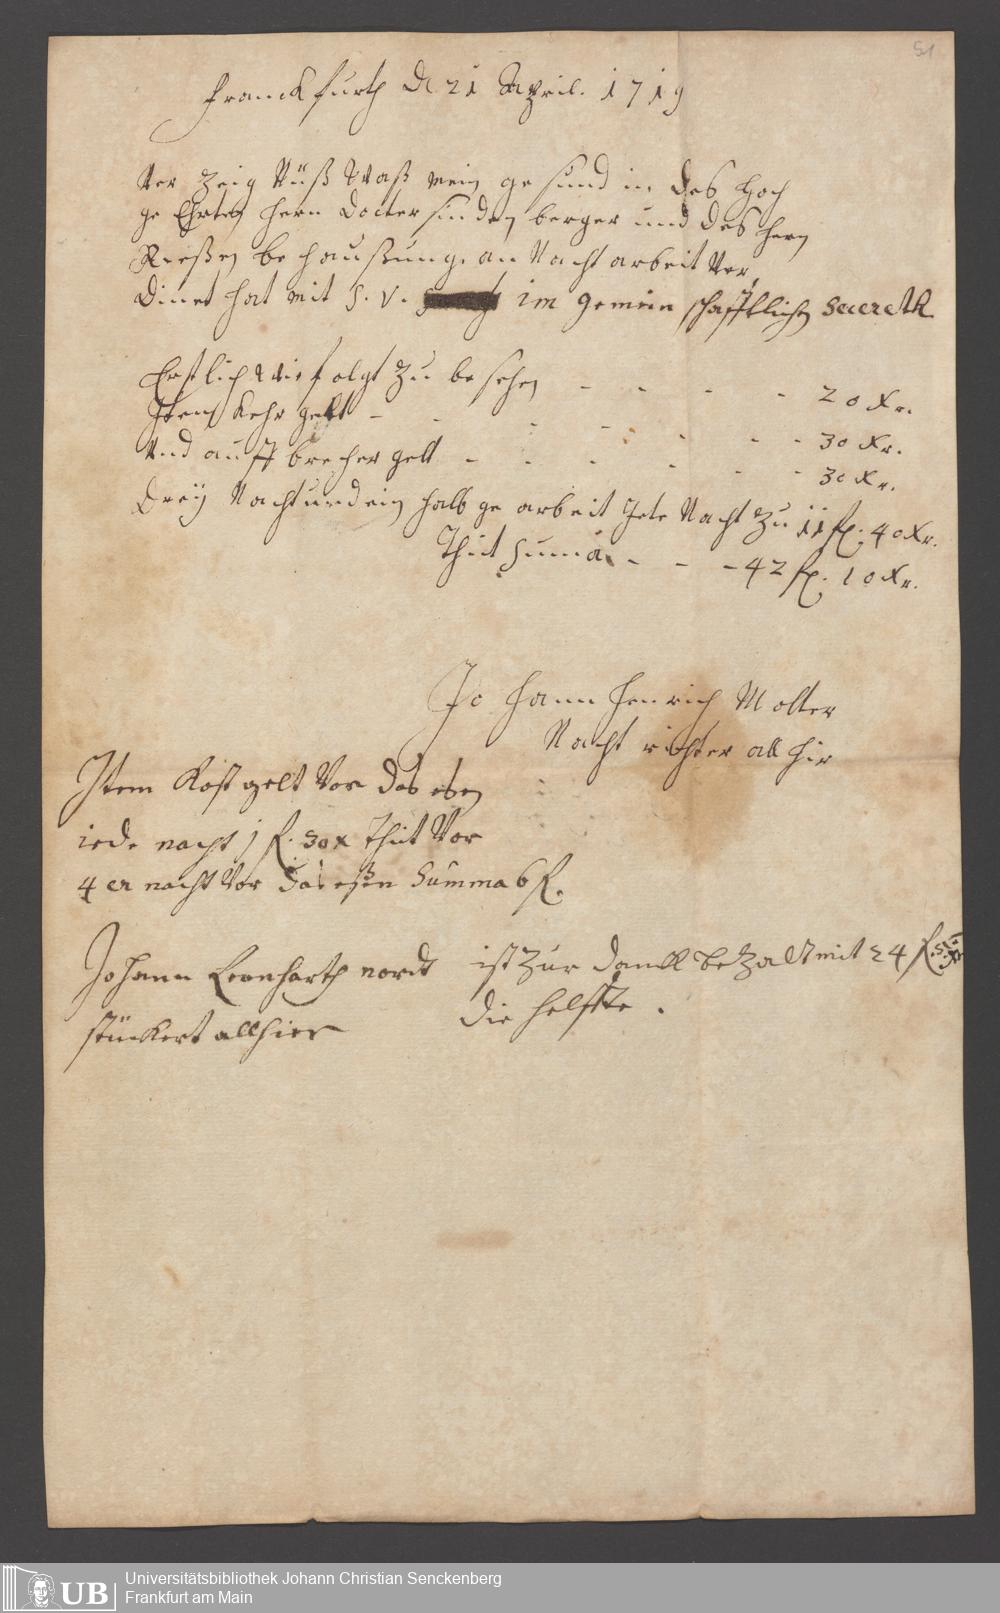 51
Franckfurth D 21 Appril. 1719
Ver Zeig Nüß Waß mein ge sind in des Hoch
ge Ehrten Hern Docter sinden berger und des Hern
Rießen be haußung. an Nacht arbeit Ver
Dinet hat mit S. V. im gemein schafftlichen Seceret
Erstlich Wie folgt Zu be sehen - - - - 20 Xr.
Item Kehr gelt - - - - - - - 30 Xr.
Und auff brecher gelt - - - - - - 30 Xr.
Dreÿ Nacht und ein halb ge arbeit Jete Nacht Zu 11 fl. 40 Xr.
Thut Suma - - - 42 fl. 10 Xr.
Jo hann Henrich Molter
Nacht richter all hir
Item Kost gelt Vor das eßen
iede nacht 1 fl. 30 x Thut Vor
4 er nacht Vor das eßen Summa 6 fl.
Johann Leonharth nord
stückert allhier
ist Zur danck be Zalt mit 24 fl. 5 Xr
die helffte .
UB
Universitätsbibliothek Johann Christian Senckenberg
Frankfurt am Main